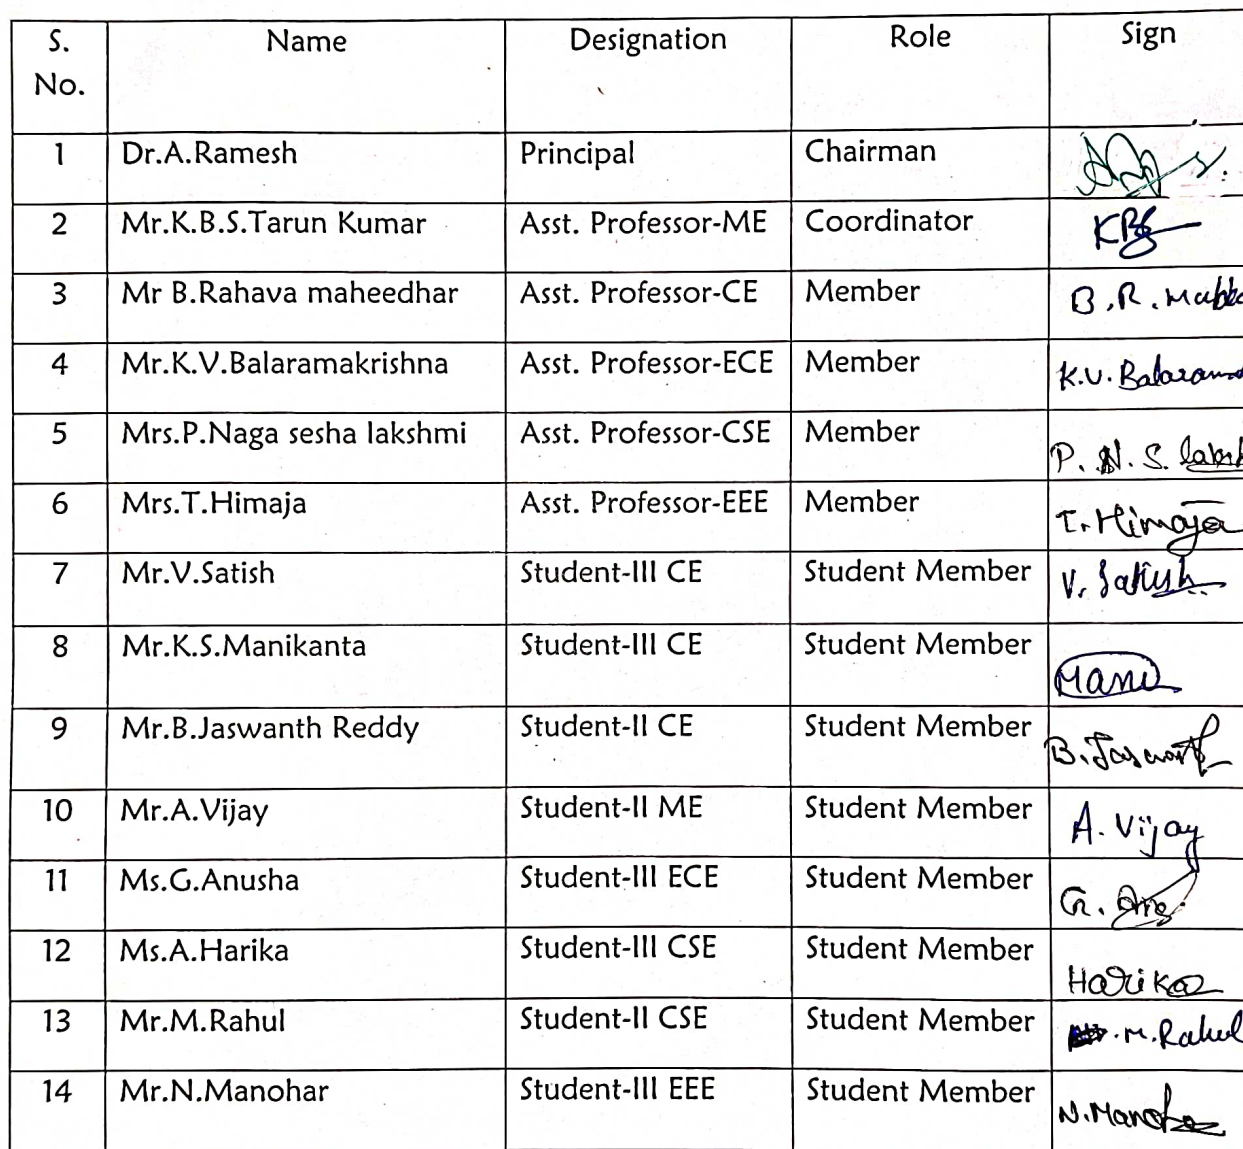 S. No. Name Designation Role Sign
1 Dr.A.Ramesh Principal Chairman
2 Mr.K.B.S.Tarun Kumar Asst. Professor-ME Coordinator
3 Mr B.Rahava maheedhar Asst. Professor-CE Member B.R.
4 Mr.K.V.Balaramakrishna Asst. Professor-ECE Member K.V.
5 Mrs.P.Naga sesha lakshmi Asst. Professor-CSE Member P. N. S.
6 Mrs.T.Himaja Asst. Professor-EEE Member T. Himaja
7 Mr.V.Satish Student-III CE Student Member V. Satish
8 Mr.K.S.Manikanta Student-III CE Student Member Mani
9 Mr.B.Jaswanth Reddy Student-II CE Student Member B. Jaswanth
10 Mr.A.Vijay Student-II ME Student Member A. Vijay
11 Ms.G.Anusha Student-III ECE Student Member G.
12 Ms.A.Harika Student-III CSE Student Member Harika
13 Mr.M.Rahul Student-II CSE Student Member M. Rahul
14 Mr.N.Manohar Student-III EEE Student Member N.